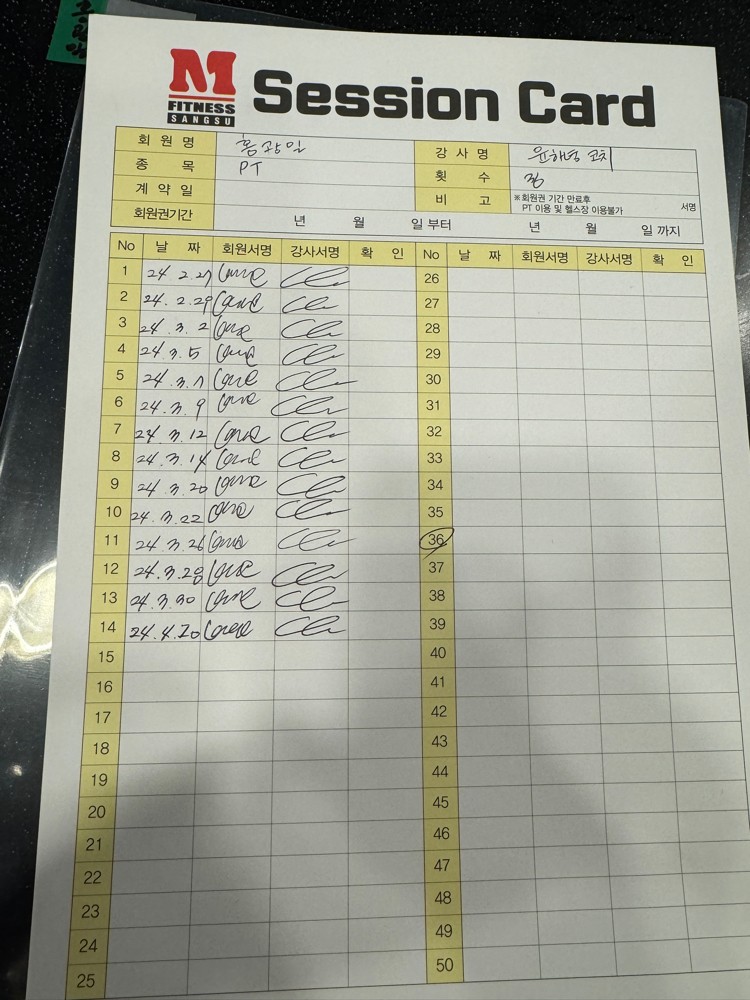 M
FITNESS
SANGSU
Session Card
회원명 홍광일 강사명 윤하녕 코치
종목 PT 횟수
계약일 비고 ※회원권 기간 만료후
PT 이용 및 헬스장 이용불가 서명
회원권기간 년 월 일 부터 년 월 일 까지
No 날짜 회원서명 강사서명 확인 No 날짜 회원서명 강사서명 확인
1 24. 2. 27 26
2 24. 2. 29 27
3 24. 3. 2 28
4 24. 3. 5 29
5 24. 3. 7 30
6 24. 3. 9 31
7 24. 3. 12 32
8 24. 3. 14 33
9 24. 3. 20 34
10 24. 3. 22 35
11 24. 3. 26 36
12 24. 3. 28 37
13 24. 3. 30 38
14 24. 4. 20 39
15 40
16 41
17 42
18 43
19 44
20 45
21 46
22 47
23 48
24 49
25 50